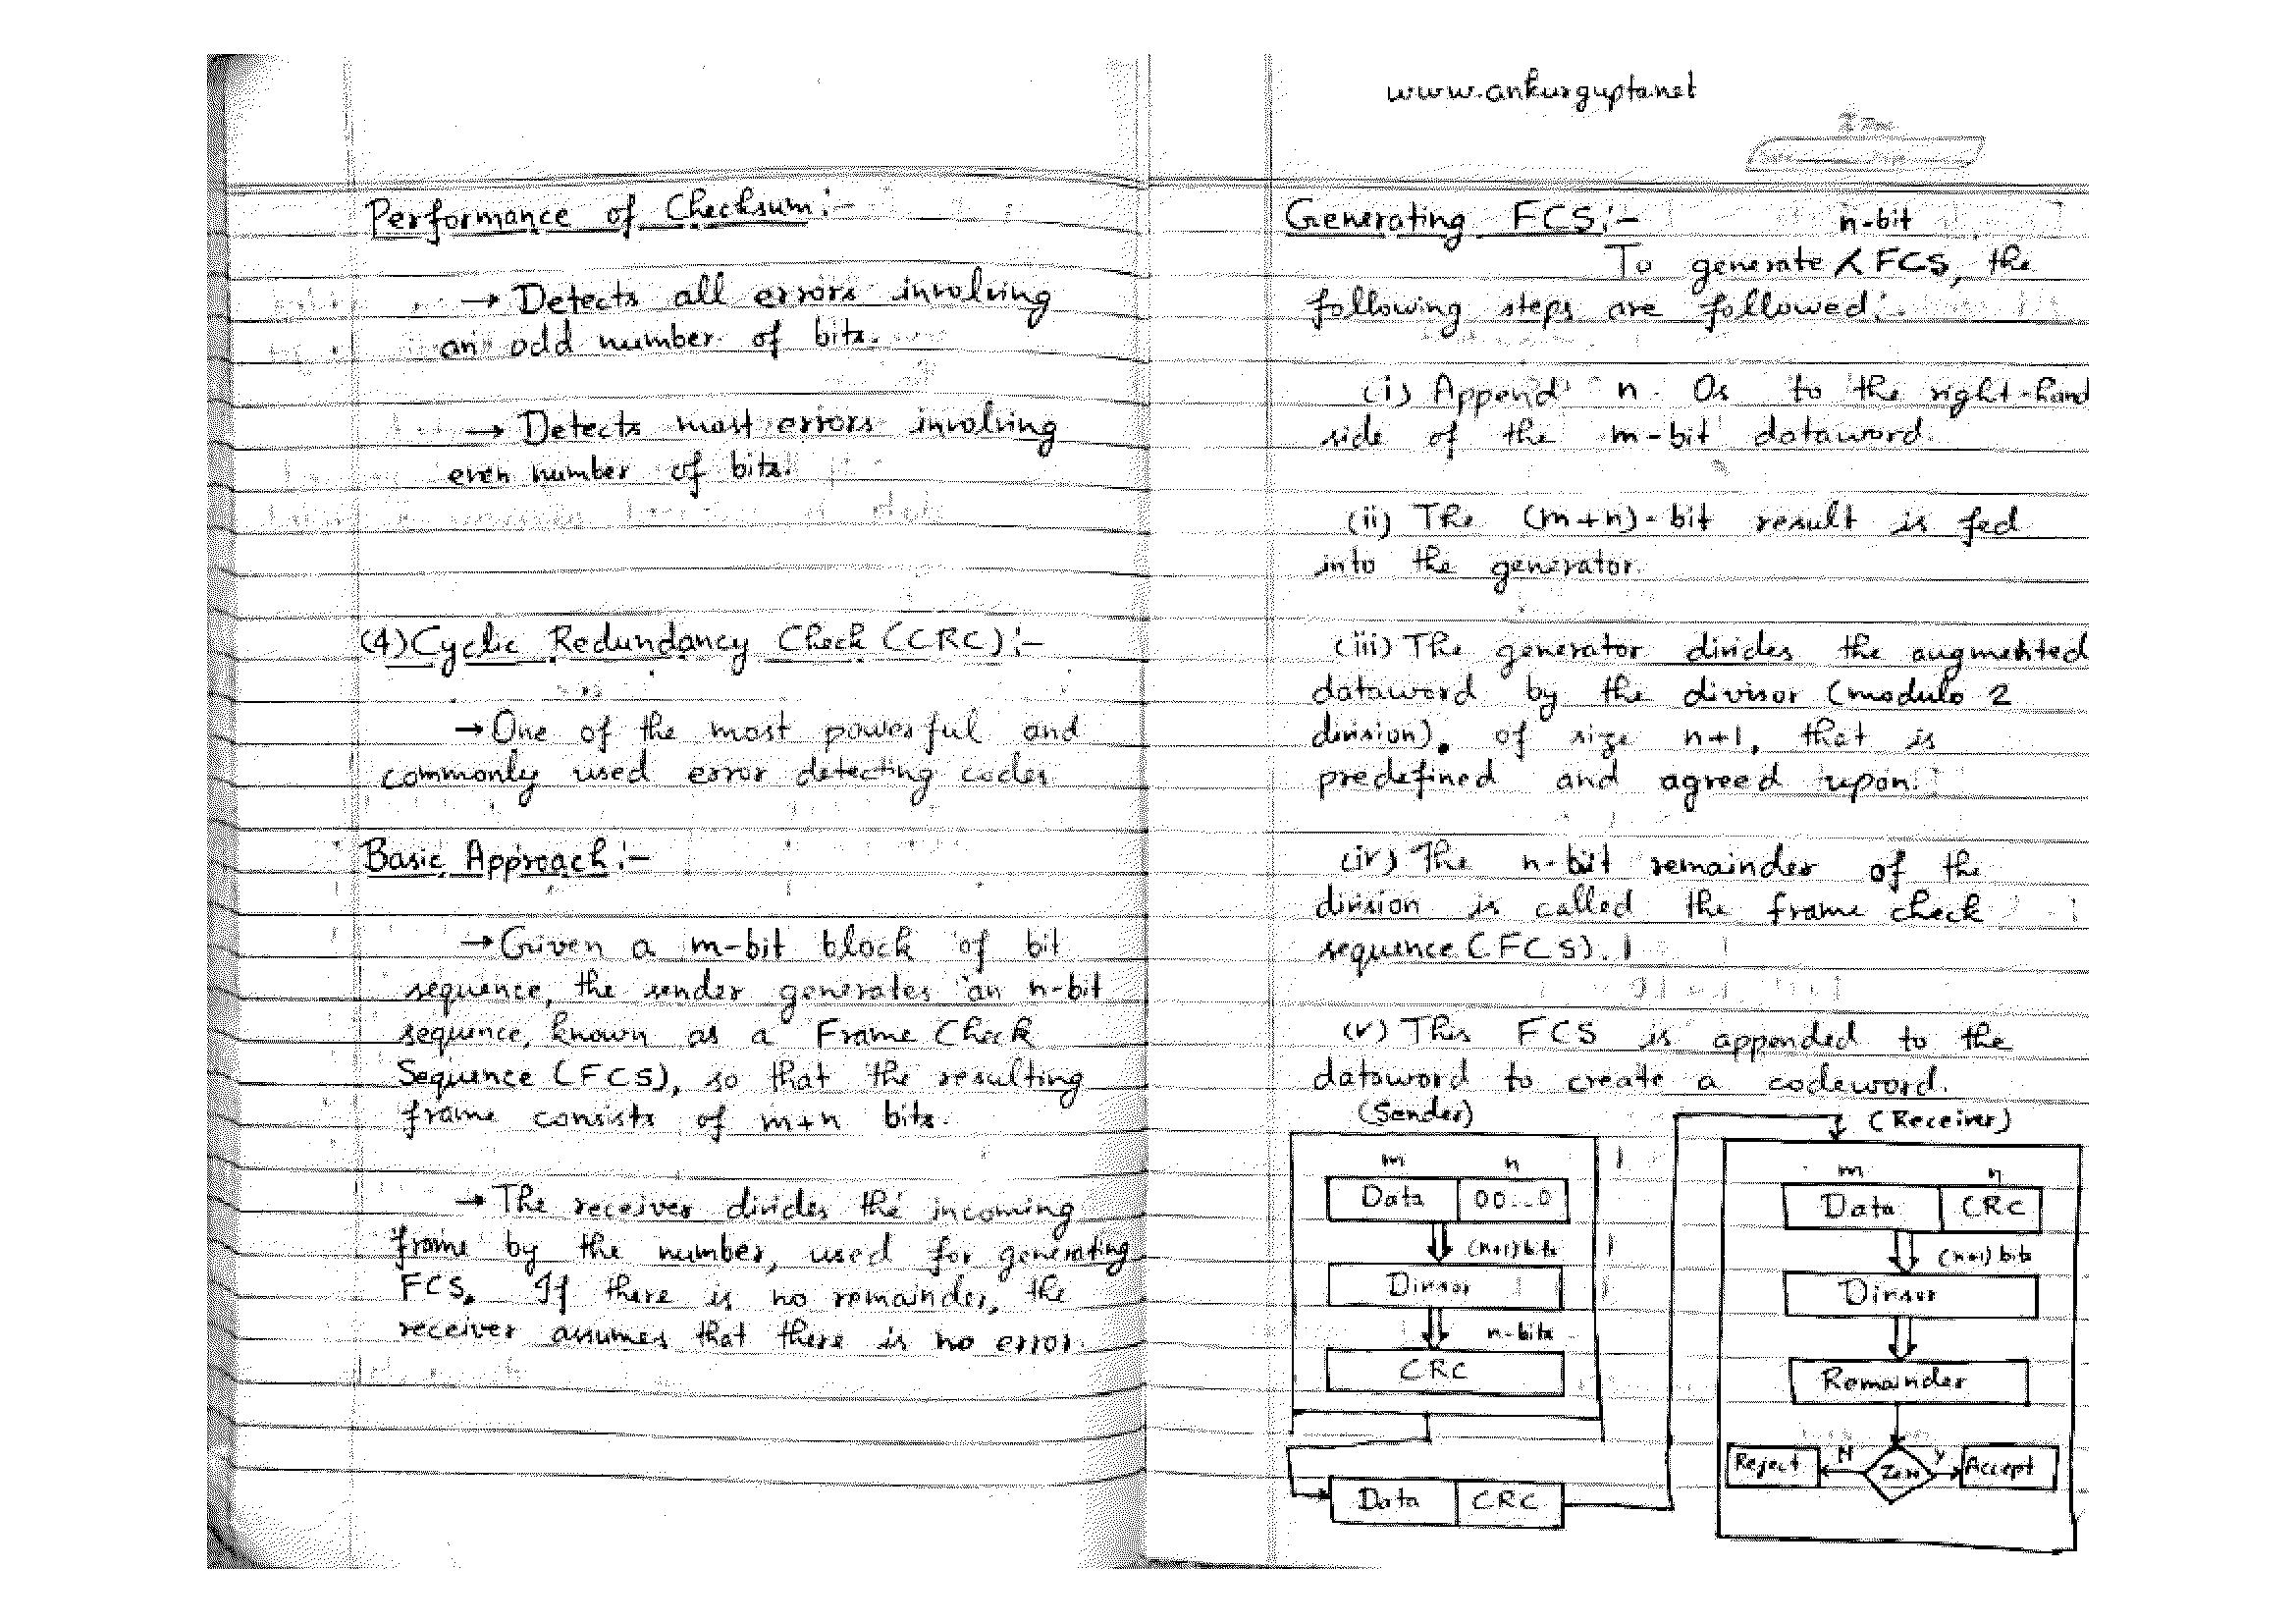 www.ankurgupta.net
Performance of Checksum:-
→ Detects all errors involving
an odd number of bits.
→ Detects most errors involving
even number of bits.
(4) Cyclic Redundancy Check (CRC):-
→ One of the most powerful and
commonly used error detecting codes
Basic Approach:-
→ Given a m-bit block of bit
sequence, the sender generates an n-bit
sequence, known as a Frame Check
Sequence (FCS), so that the resulting
frame consists of m+n bits.
→ The receiver divides the incoming
frame by the number, used for generating
FCS. If there is no remainder, the
receiver assumes that there is no error.
Generating FCS:-
n-bit
To generate FCS, the
following steps are followed:
(i) Append n 0s to the right-hand
side of the m-bit dataword.
(ii) The (m+n)-bit result is fed
into the generator.
(iii) The generator divides the augmented
dataword by the divisor (modulo 2
division), of size n+1, that is
predefined and agreed upon.
(iv) The n-bit remainder of the
division is called the frame check
sequence (FCS).
(v) This FCS is appended to the
dataword to create a codeword.
(Sender)
m n
Data 00...0
(n+1) bits
Divisor
n-bits
CRC
Data CRC
(Receiver)
m n
Data CRC
(n+1) bits
Divisor
Remainder
Reject N Zero Y Accept